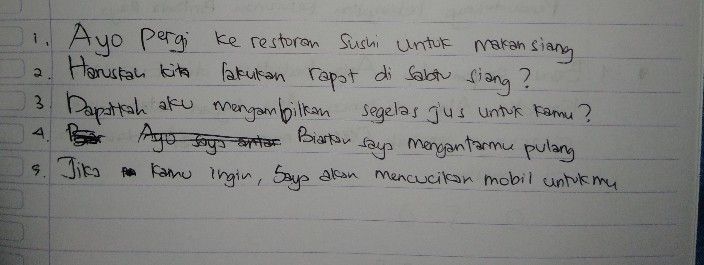 1. Ayo pergi ke restoran Sushi untuk makan siang
2. Haruskah kita lakukan rapat di Sabtu siang?
3. Dapatkah aku mengambilkan segelas jus untuk kamu?
4. Ayo saya antar Biarkan saya mengantarmu pulang
5. Jika kamu ingin, Saya akan mencucikan mobil untukmu